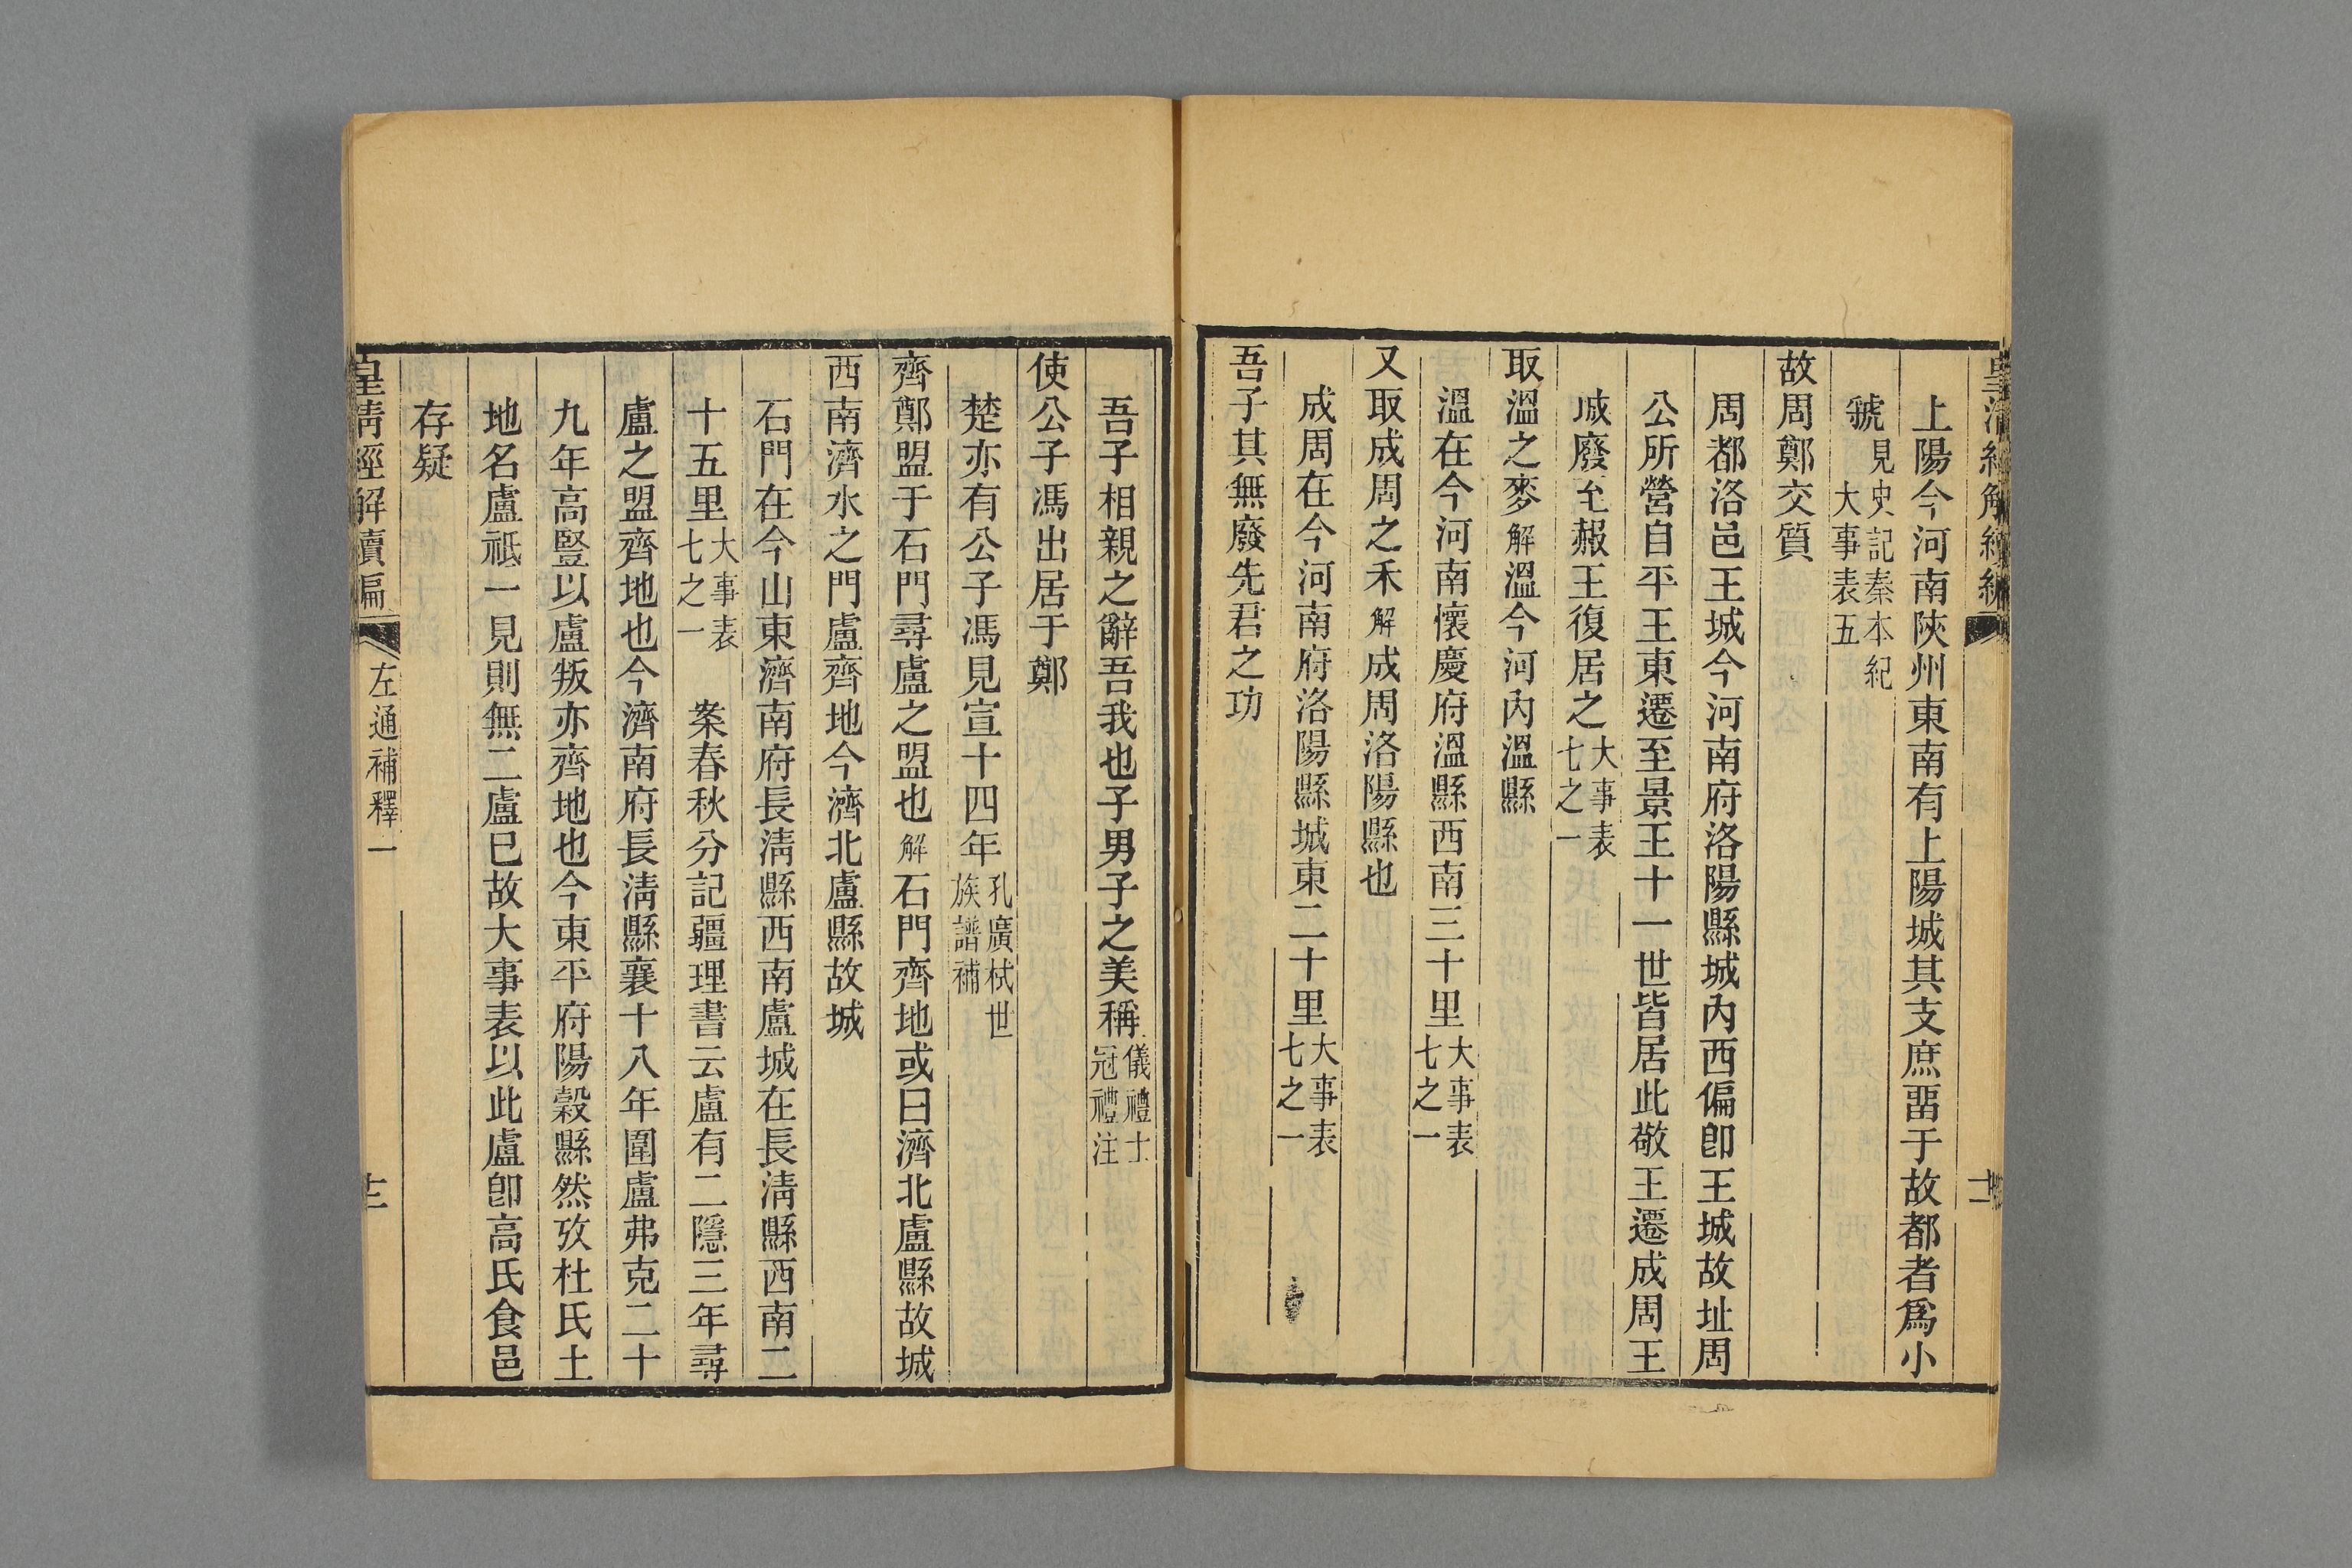 上陽今河南陝州東南有上陽城其支庶畱于故都者爲小
虢見史記秦本紀大事表五
故周鄭交質
周都洛邑王城今河南府洛陽縣城內西偏卽王城故址周
公所營自平王東遷至景王十一世皆居此敬王遷成周王
城廢至赧王復居之大事表七之一
取溫之麥解溫今河內溫縣
溫在今河南懷慶府溫縣西南三十里大事表七之一
又取成周之禾解成周洛陽縣也
成周在今河南府洛陽縣城東二十里大事表七之一
吾子其無廢先君之功
吾子相親之辭吾我也子男子之美稱儀禮士冠禮注
使公子馮出居于鄭
楚亦有公子馮見宣十四年孔廣栻世族譜補
齊鄭盟于石門尋盧之盟也解石門齊地或曰濟北盧縣故城
西南濟水之門盧齊地今濟北盧縣故城
石門在今山東濟南府長淸縣西南盧城在長淸縣西南二
十五里大事表七之一 案春秋分記疆理書云盧有二隱三年尋
盧之盟齊地也今濟南府長淸縣襄十八年圍盧弗克二十
九年高豎以盧叛亦齊地也今東平府陽穀縣然攷杜氏土
地名盧祗一見則無二盧巳故大事表以此盧卽高氏食邑
存疑
皇淸經解續編
左通補釋一